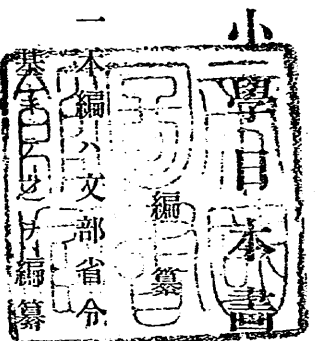 小學日本畫
編纂
一本編ハ文部省令
基キテ之ヲ編纂